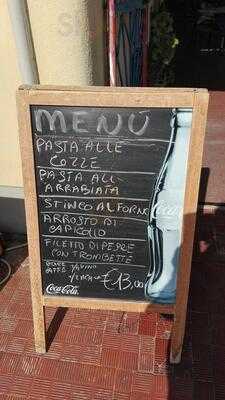 MENÚ
PASTA ALLE
COZZE
PASTA ALL
ARRABIATA
STINCO AL FORNO
ARROSTO DI
CAPICOLLO
FILETTO DI PESCE
CON TROMBETTE
CAFFÈ
VINO
€13,00
Coca-Cola
Coca-Cola